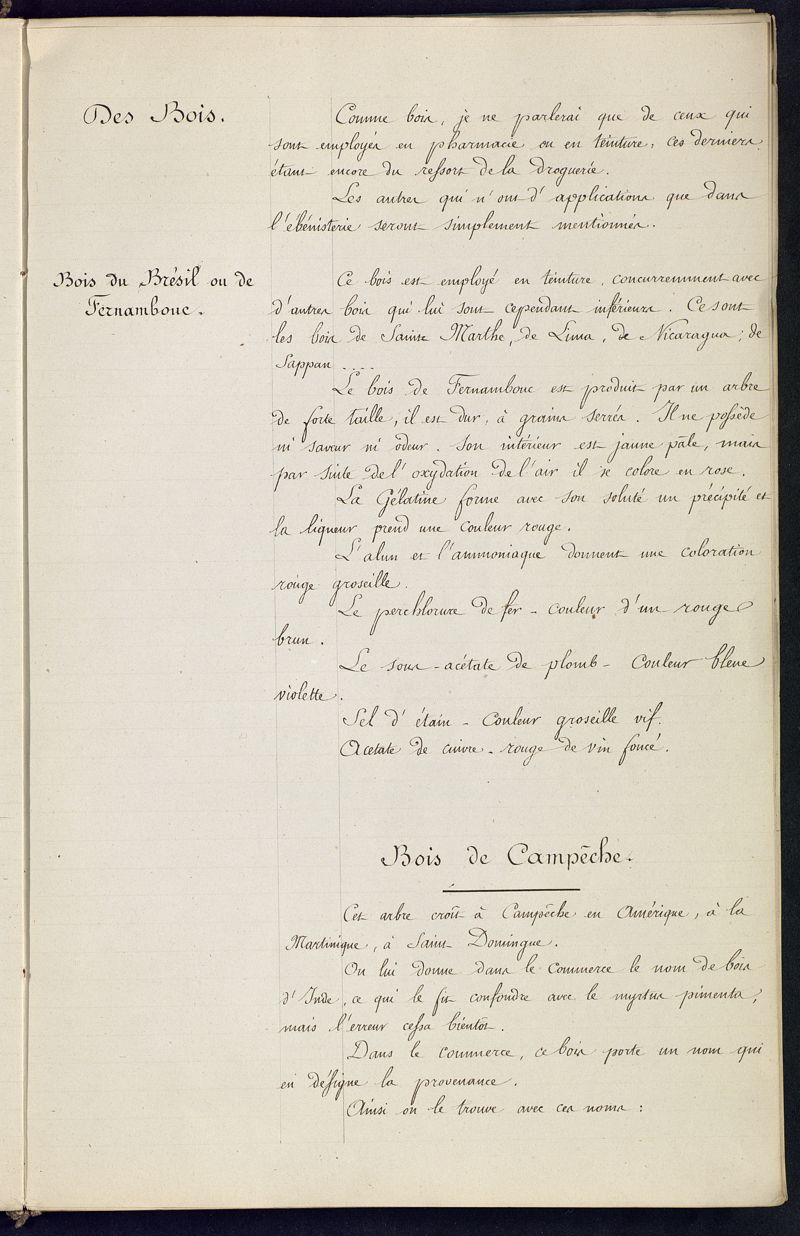 Des Bois.
Comme bois, je ne parlerai que de ceux qui
sont employés en pharmacie ou en teinture, ces derniers
étant encore du ressort de la droguerie.
Les autres qui n'ont d'applications que dans
l'ébénisterie seront simplement mentionnés.
Bois du Brésil ou de
Fernambouc.
Ce bois est employé en teinture, concurremment avec
d'autres bois qui lui sont cependant inférieurs. Ce sont
les bois de Sainte Marthe, de Lima, de Nicaragua, de
Sappan ....
Le bois de Fernambouc est produit par un arbre
de forte taille, il est dur, à grains serrés. Il ne possède
ni saveur ni odeur. son intérieur est jaune pâle, mais
par suite de l'oxydation de l'air il se colore en rose.
La Gélatine forme avec son soluté un précipité et
la liqueur prend une couleur rouge.
L'alun et l'ammoniaque donnent une coloration
rouge groseille.
Le perchlorure de fer - couleur d'un rouge
brun.
Le sous-acétate de plomb - couleur bleue
violette.
Sel d'étain - couleur groseille vif.
Acetate de cuivre - rouge de vin foncé.
Bois de Campêche.
Cet arbre croît à Campêche en Amérique, à la
Martinique, à Saint Domingue.
On lui donne dans le commerce le nom de bois
d'Inde, ce qui le fit confondre avec le myrtus pimenta,
mais l'erreur cessa bientôt.
Dans le commerce, ce bois porte un nom qui
en désigne la provenance.
Ainsi on le trouve avec ces noms :